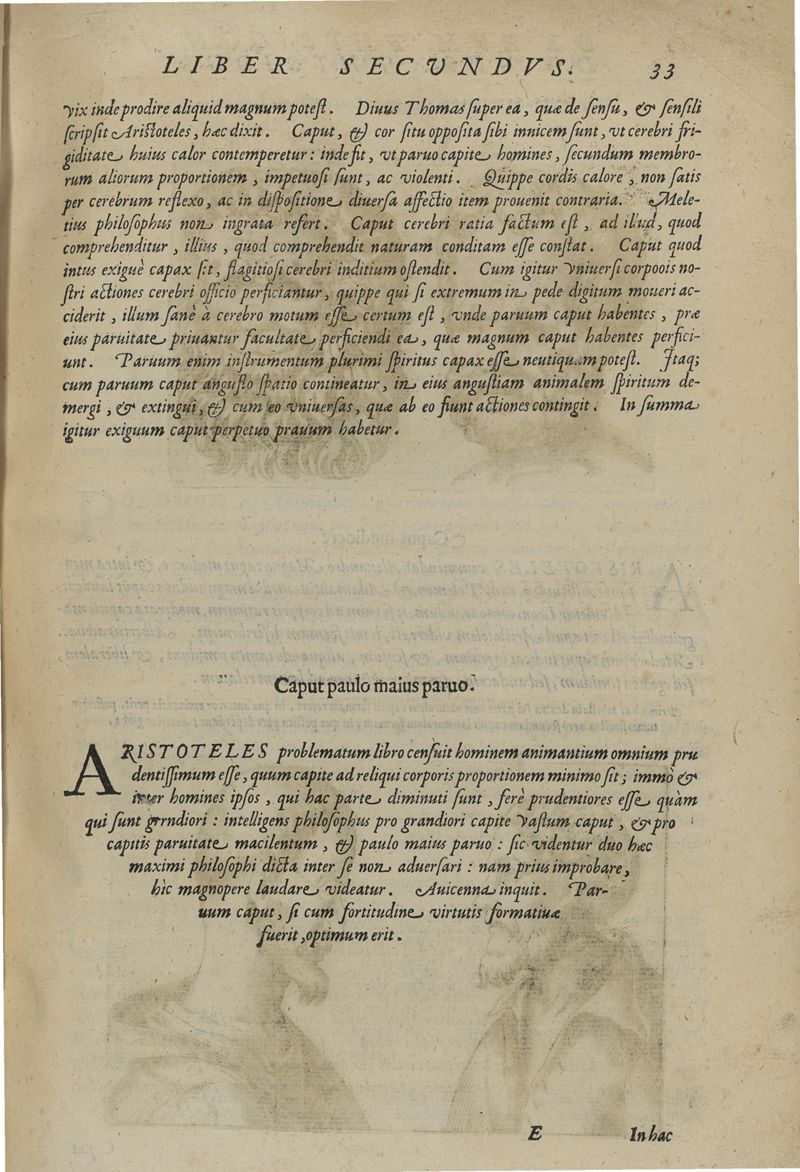 LIBER SECUNDVS. 33
vix inde prodire aliquid magnum potest. Diuus Thomas super ea, quæ de sensu, & sensili
scripsit Aristoteles, hæc dixit. Caput, & cor situ opposita sibi inuicem sunt, vt cerebri fri-
giditate huius calor contemperetur: inde fit, vt paruo capite homines, secundum membro-
rum aliorum proportionem, impetuosi sunt, ac violenti. Quippe cordis calore, non satis
per cerebrum reflexo, ac in dispositione diuersa affectio item prouenit contraria. Mele-
tius philosophus non ingrata refert. Caput cerebri ratia factum est, ad illud, quod
comprehenditur, illius, quod comprehendit naturam conditam esse constat. Caput quod
intus exiguè capax sit, flagitiosi cerebri inditium ostendit. Cum igitur vniuersi corpoois no-
stri actiones cerebri officio perficiantur, quippe qui si extremum in pede digitum moueri ac-
ciderit, illum sanè à cerebro motum esse certum est, vnde paruum caput habentes, præ
eius paruitate priuantur facultate perficiendi ea, quæ magnum caput habentes perfici-
unt. Paruum enim instrumentum plurimi spiritus capax esse neutiquam potest. Itaq;
cum paruum caput angusto spatio contineatur, in eius angustiam animalem spiritum de-
mergi, & extingui, & cum eo vniuersas, quæ ab eo fiunt actiones contingit. In summa
igitur exiguum caput perpetuo prauum habetur.
Caput paulo maius paruo.
ARISTOTELES problematum libro censuit hominem animantium omnium pru
dentissimum esse, quum capite ad reliqui corporis proportionem minimo sit; immò &
inter homines ipsos, qui hac parte diminuti sunt, ferè prudentiores esse quàm
qui sunt grrndiori: intelligens philosophus pro grandiori capite vastum caput, & pro
capitis paruitate macilentum, & paulo maius paruo: sic videntur duo hæc
maximi philosophi dicta inter se non aduersari: nam prius improbare,
hìc magnopere laudare videatur. Auicenna inquit. Par-
uum caput, si cum fortitudine virtutis formatiuæ
fuerit, optimum erit.
E In hac